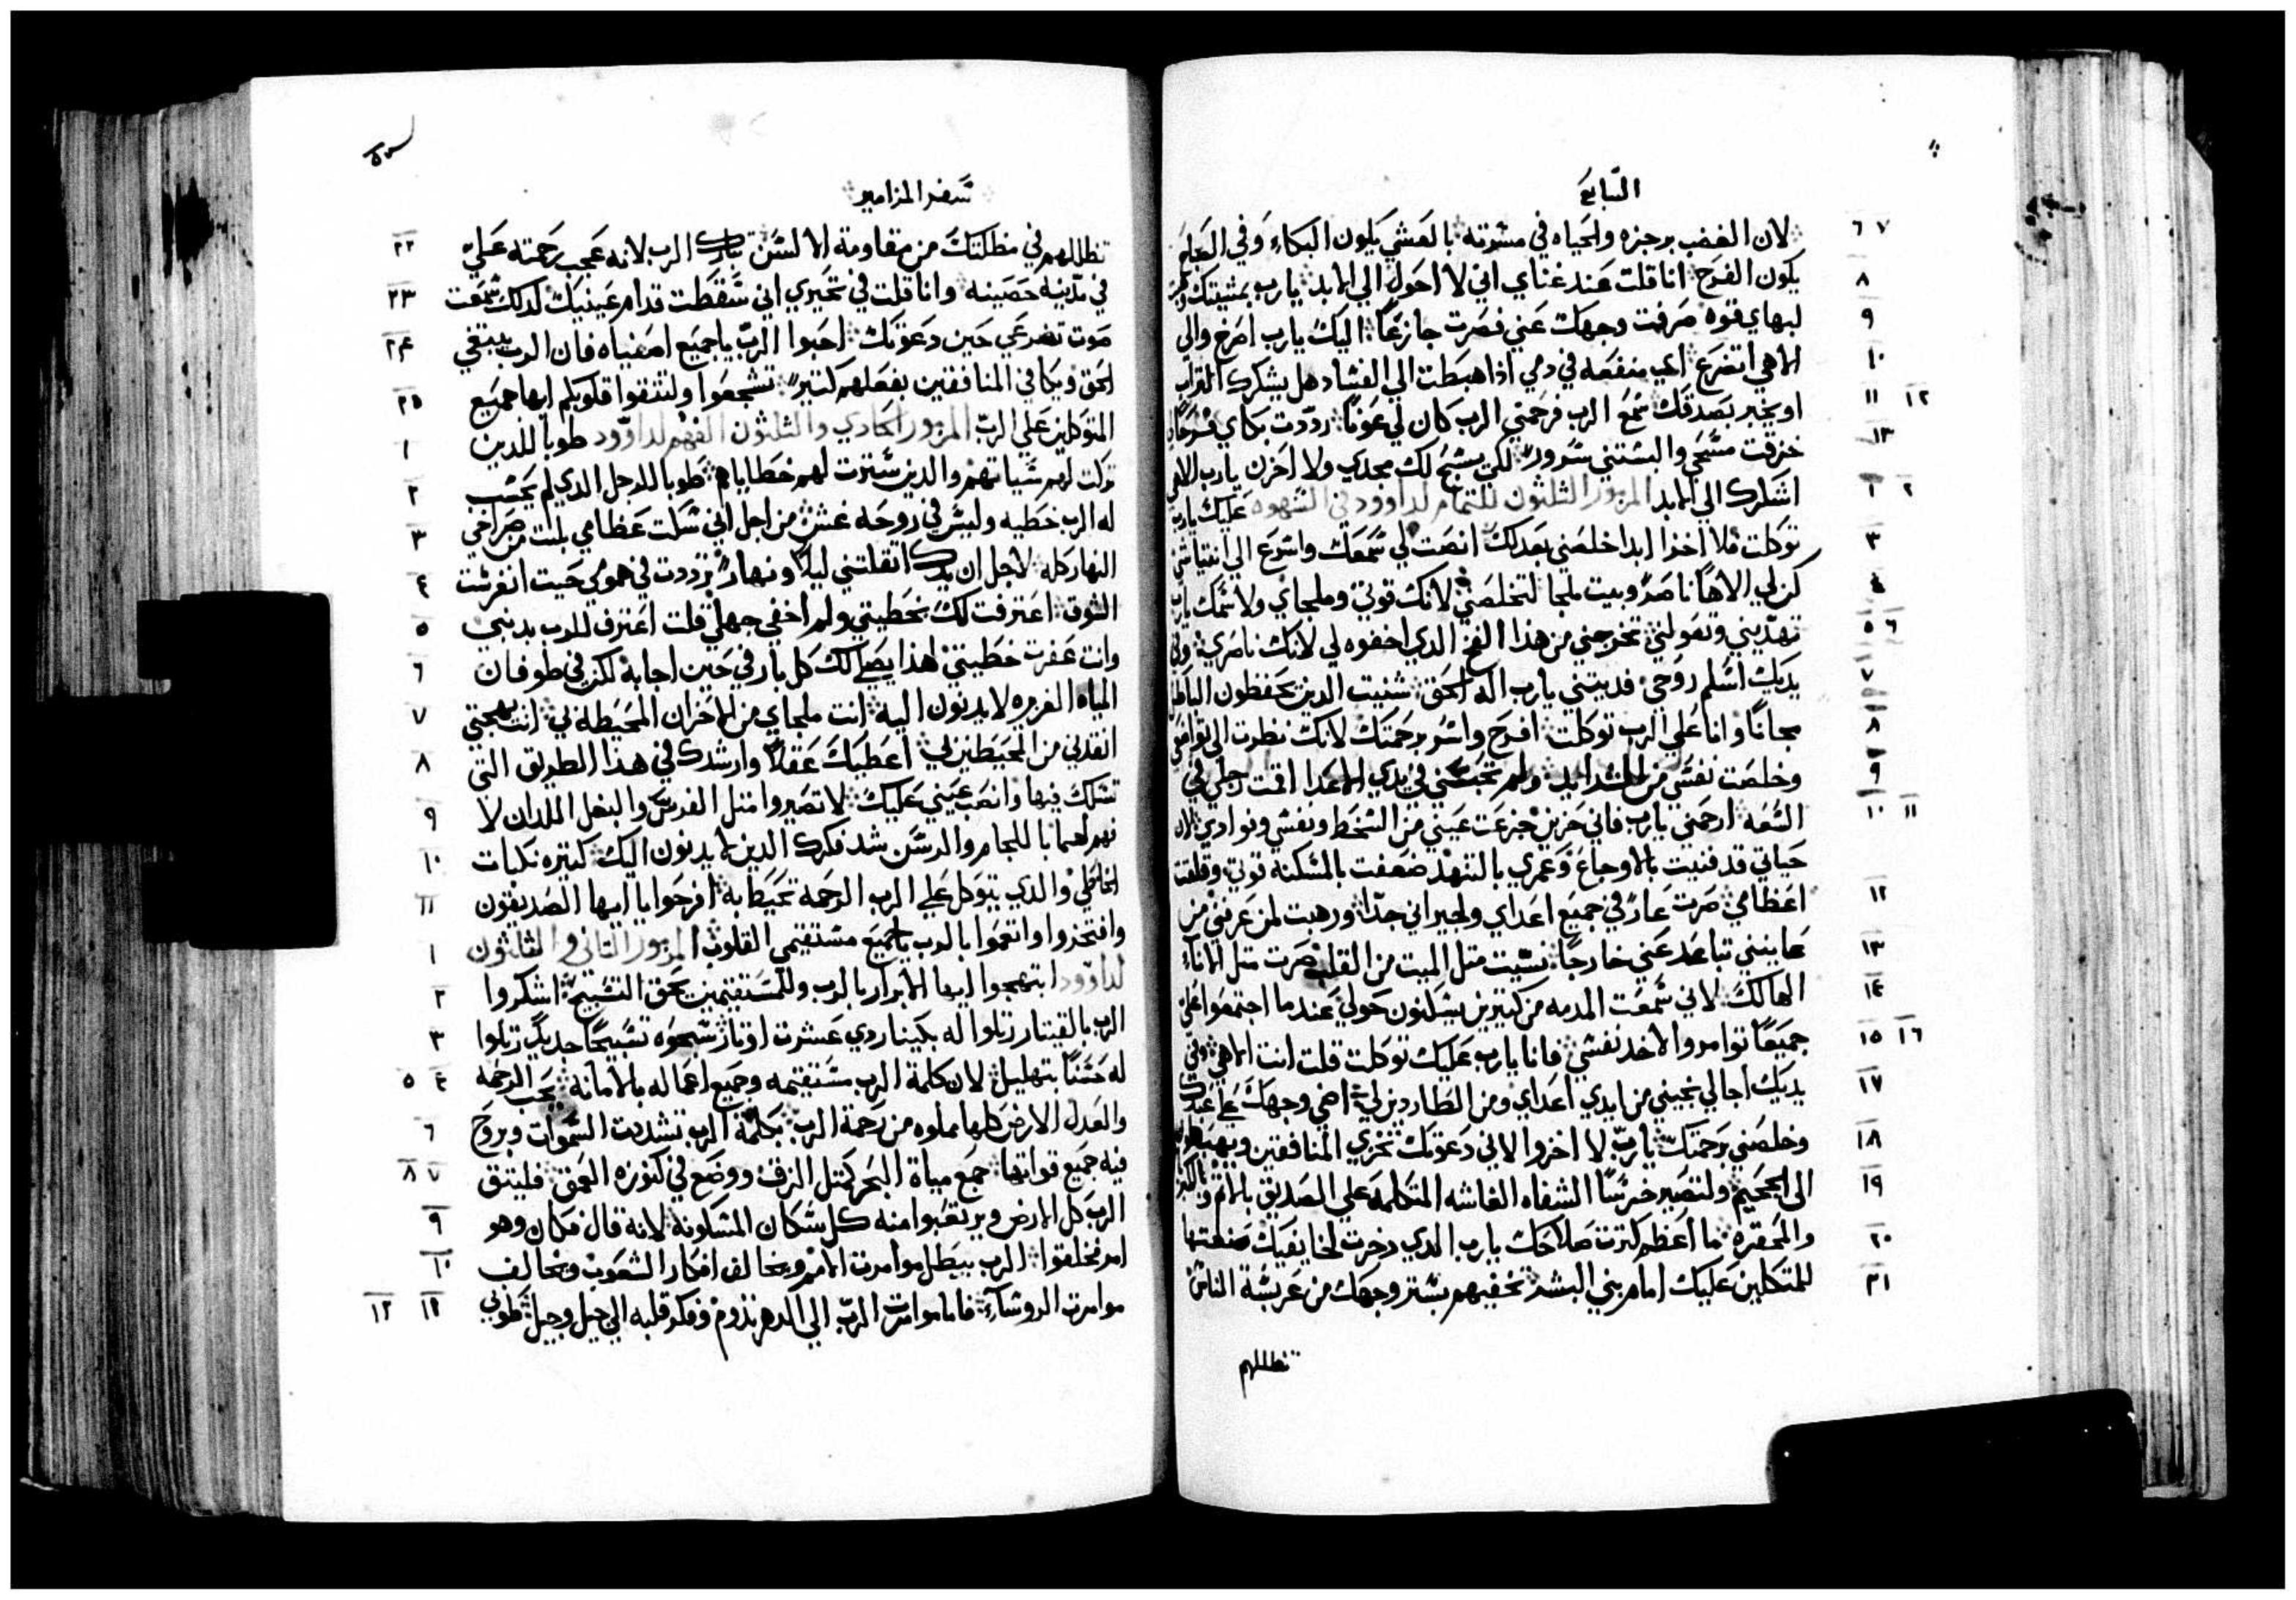 السابع
٦ ٧ لان الغضب برجزه والحياه في مشرته بالعشي يكون البكاء وفي
٨ يكون الفرح انا قلت عند غناي اني لا احول الي الابد يارب بمشيتك
٩ لبهاي قوه صرفت وجهك عني فصرت جازعًا اليك يارب اصرخ والى
١٠ الاهي اتضرع اي منفعه في دمي اذا هبطت الي الفساد هل يشكرك التراب
١١ ١٢ او يخبر بصدقك سمع الرب فرحمني الرب كان لي عونًا رددت بكاي فرحًا
١٣ خزقت مسحي والبستني سرورًا لكي يسبح لك مجدي ولا احزن يارب الاهي
١ ٢ اشكرك الي الابد المزمور الثلثون للتمام لداوود في الشهوه عليك يارب
٣ توكلت فلا اخزا ابدا خلصني بعدلك انصت لي سمعك واسرع الي
٤ كن لي الاهًا ناصرًا وبيت ملجا لتخلصني لانك قوتي وملجاي ولاسمك يارب
٥ ٦ تهديني وتعولني تخرجني من هذا الفخ الدي اخفوه لي لانك ناصري وفي
٧ يديك اسلم روحي فديتني يارب اله الحق شنيت الدين يحفظون الباطل
٨ مجانًا وانا علي الرب توكلت افرح واسر برحمتك لانك نظرت الي تواضعي
٩ وخلصت نفسي من الشدايد ولم تحبسني في يدي الاعدا اقمت رجلي في
١٠ ١١ السعه ارحمني يارب فاني حزين جزعت عيني من السخط ونفسي وفوادي لان
حياتي قد فنيت بالاوجاع وعمري بالتنهد ضعفت بالمسكنه قوتي وقلقت
١٢ اعظامي صرت عارًا في جميع اعداي ولجيراني جدًا ورهبت لمن عرفني من
١٣ عاينني تباعد عني خارجًا نسيت متل الميت من القلب صرت متل الاناء
١٤ الهالك لاني سمعت المدمه من كتيرين يسكنون حولي عندما اجتمعوا علي
١٥ ١٦ جميعًا توامروا لاخد نفسي فانا يارب عليك توكلت قلت انت الاهي وفي
١٧ يديك اجالي نجيني من ايدي اعداي ومن الطاردين لي اضي وجهك علي عبدك
١٨ وخلصني برحمتك يارب لا اخزوا لاني دعوتك تخزي المنافقين ويهبطون
١٩ الى الجحيم ولتصير خرسًا الشفاه الغاشه المتكلمه علي الصديق بالاتم والكبر
٢٠ والمحقره ما اعظم كترت صلاحك يارب الدي دخرت لخايفيك صنعتها
٢١ للمتكلين عليك امام بني البشر تخفيهم بستر وجهك من عربسة الناس
تظللهم
سفر المزامير
تظللهم في مظلتك من مقاومة الالسن تبارك الرب لانه عجب رحمته علي ٢٢
في مدينه حصينه وانا قلت في تحيري اني سقطت قدام عينيك لدلك سمعت ٢٣
صوت تضرعي حين دعوتك احبوا الرب يا جميع اصفياه فان الرب يبتغي ٢٤
الحق ويكافي المنافقين بفعلهم كتيرًا تشجعوا ولتتقوا قلوبكم ايها جميع ٢٥
المتوكلين علي الرب المزمور الحادي والثلثون الفهم لداوود طوبا للدين ١
تركت لهم سياتهم والدين سترت لهم خطاياهم طوبا للرجل الدي لم يحسب ٢
له الرب خطيه وليس في روحه غش من اجل اني سكت عظامي بلت من صراخي ٣
النهار كله لاجل ان يدك اتقلتني ليلًا ونهارًا ترددت في همومي حيت انغرست ٤
الشوك اعترفت لك بخطيتي ولم اخفي جهلي قلت اعترف للرب بدنبي ٥
وانت غفرت خطيتي لهذا يصلي لك كل بار في حين اجابة لكن في طوفان ٦
المياه الغزيره لا يدنون اليه انت ملجاي من الاحزان المحيطه بي انت بهجتي ٧
انقدني من المحيطين بي اعطيك عقلًا وارشدك في هذا الطريق التي ٨
تسلك فيها وانصب عيني عليك لا تصيروا متل الفرس والبغل اللدان لا ٩
فهم لهما باللجام والرسن شد فكوك الدين لا يدنون اليك كتيره نكبات ١٠
الخاطي والدي يتوكل علي الرب الرحمة تحيط به افرحوا يا ايها الصديقون ١١
وافتخروا وانعموا بالرب يا جميع مستقيمي القلوب المزمور التاني والثلثون ١
لداوود ابتهجوا ايها الابرار بالرب وللمستقيمين يحق التسبيح اشكروا ٢
الرب بالقيتار رتلوا له بكينار دي عشرت اوتار سبحوه تسبيحًا جديدًا رتلوا ٣
له حسنًا بتهليل لان كلمة الرب مستقيمه وجميع اعماله بالامانه يحب الرحمه ٤ ٥
والعدل الارض كلها مملوه من رحمة الرب بكلمة الرب تشددت السموات وبروح ٦
فيه جميع قواتها جمع مياة البحر كمتل الزق ووضع في كنوزه العمق فليتق ٧ ٨
الرب كل الارض ويرتعبوا منه كل سكان المسكونة لانه قال فكان وهو ٩
امر فخلقوا الرب يبطل موامرت الامم ويخالف افكار الشعوب ويخالف ١٠
موامرت الروساء فاما موامرت الرب الي الدهر تدوم وفكر قلبه الي جيل وجيل طوبي ١١ ١٢